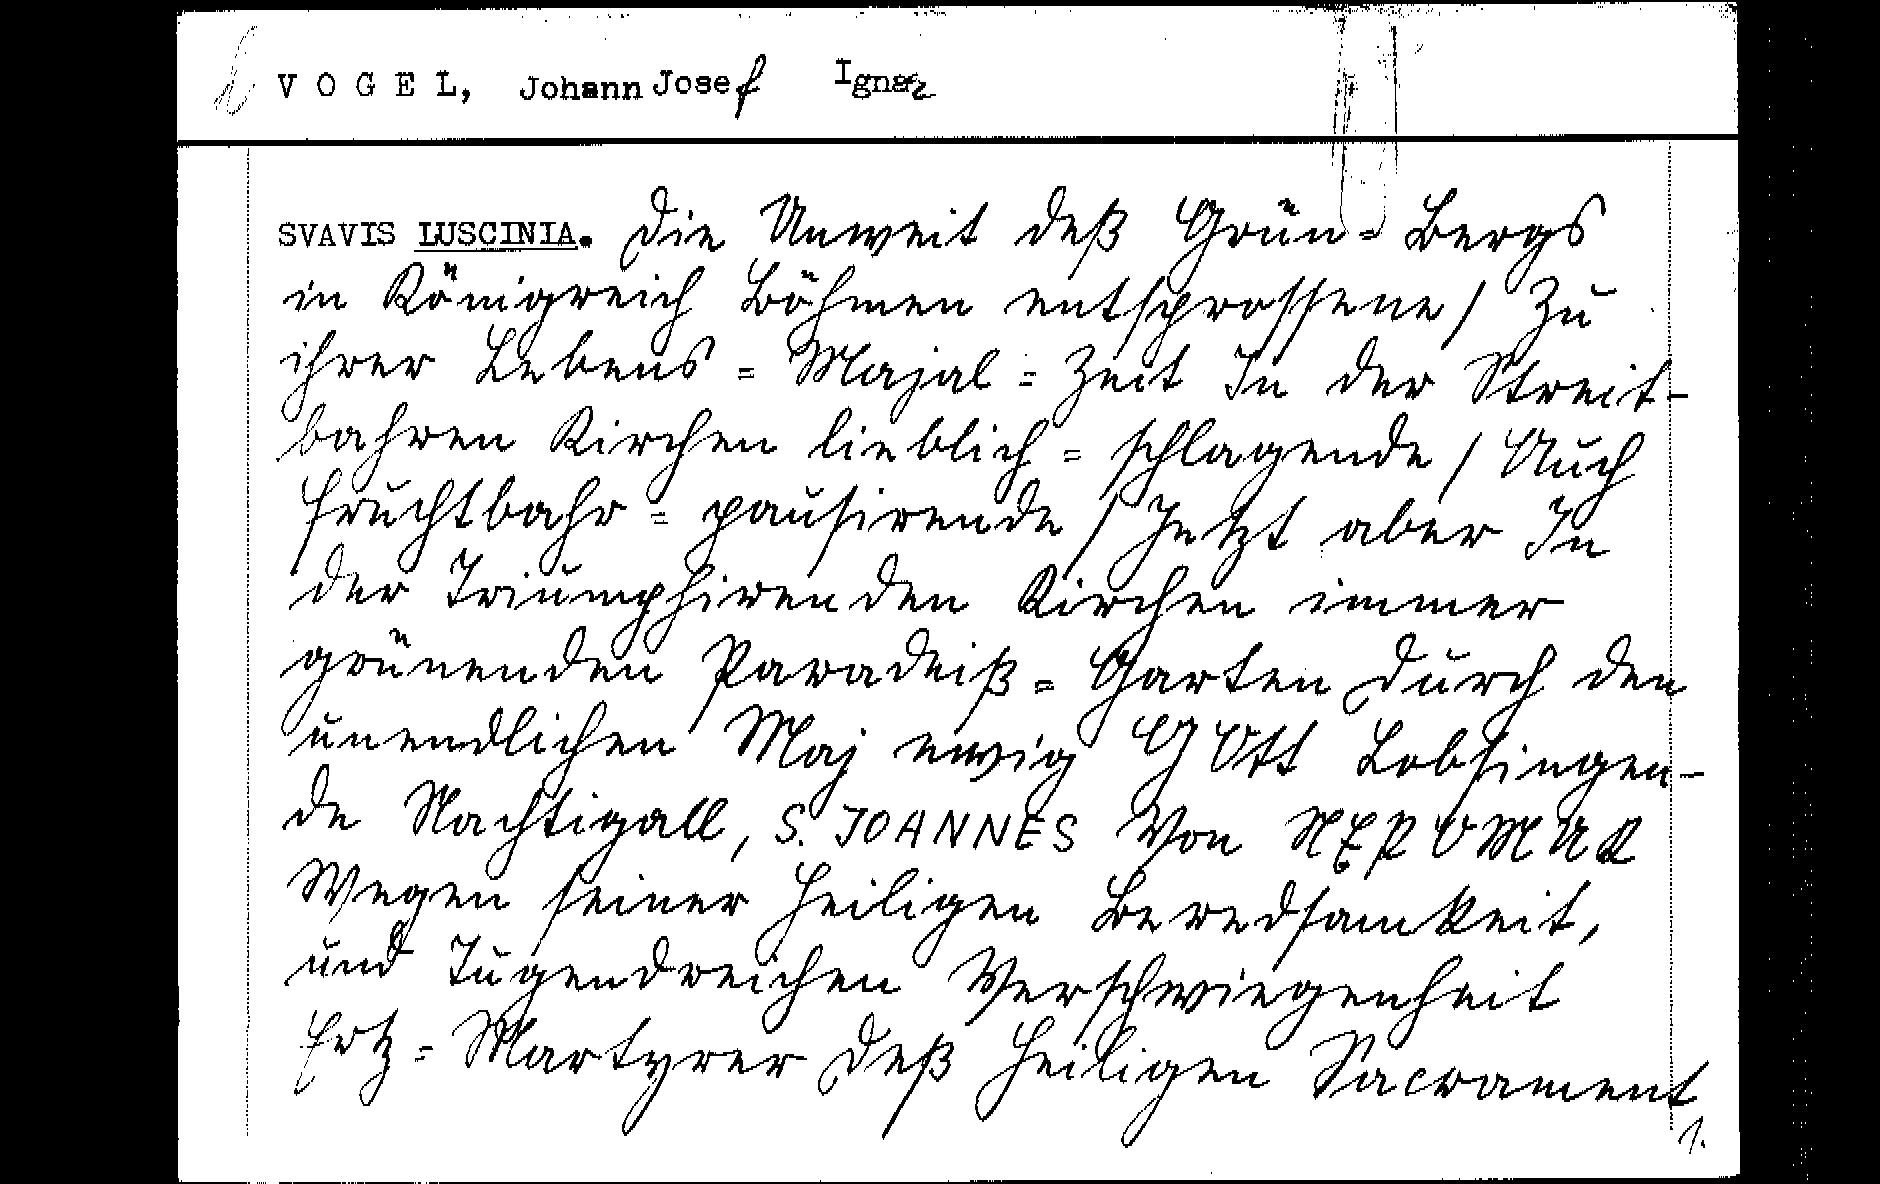 VOGEL, Johann Josef Ignaz
SVAVIS LUSCINIA. Die Unweit deß Grün=Bergs
in Königreich Böhmen entsprossene/ Zu
ihrer Lebens=Majal=Zeit In der Streit-
bahren Kirchen lieblich=schlagende/ Auch
fruchtbahr=pausirende/ Jetzt aber In
der Triumphirenden Kirchen immer
grünenden Paradeiß=Garten durch den
unendlichen Maj ewig GOtt Lobsingen-
de Nachtigall, S. JOANNES Von NEPOMUK
Wegen seiner heiligen Beredsamkeit,
und Tugendreichen Verschwiegenheit
Ertz=Martyrer deß heiligen Sacrament
1.